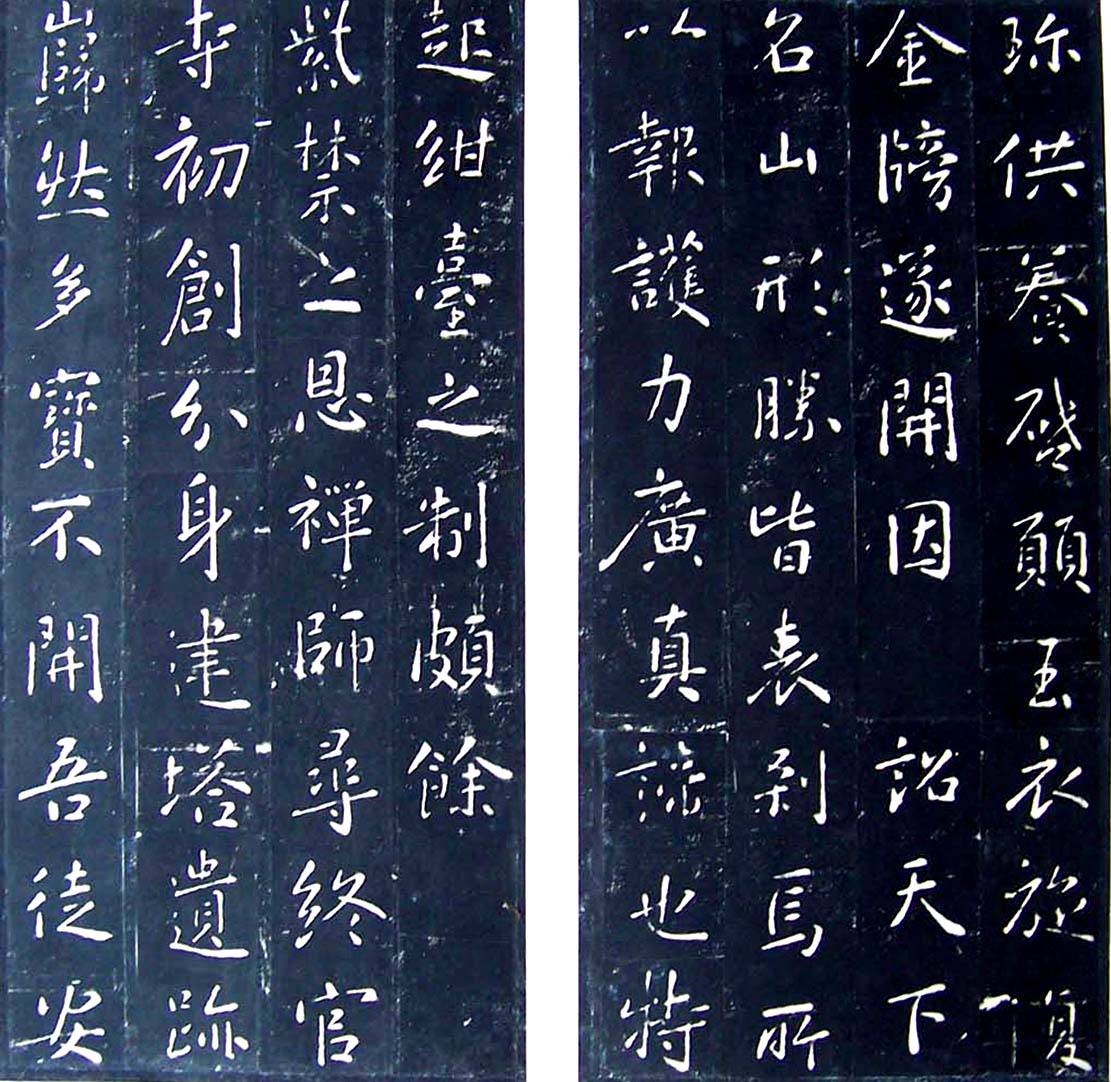 弥供養啓願玉衣旋復
金牓遂開因 詔天下
名山形勝皆表刹焉所
以報護力廣真諦也特
起紺臺之制頗餘
紫禁之恩禪師尋終官
寺初創分身建塔遺跡
巋然多寶不開吾徒安